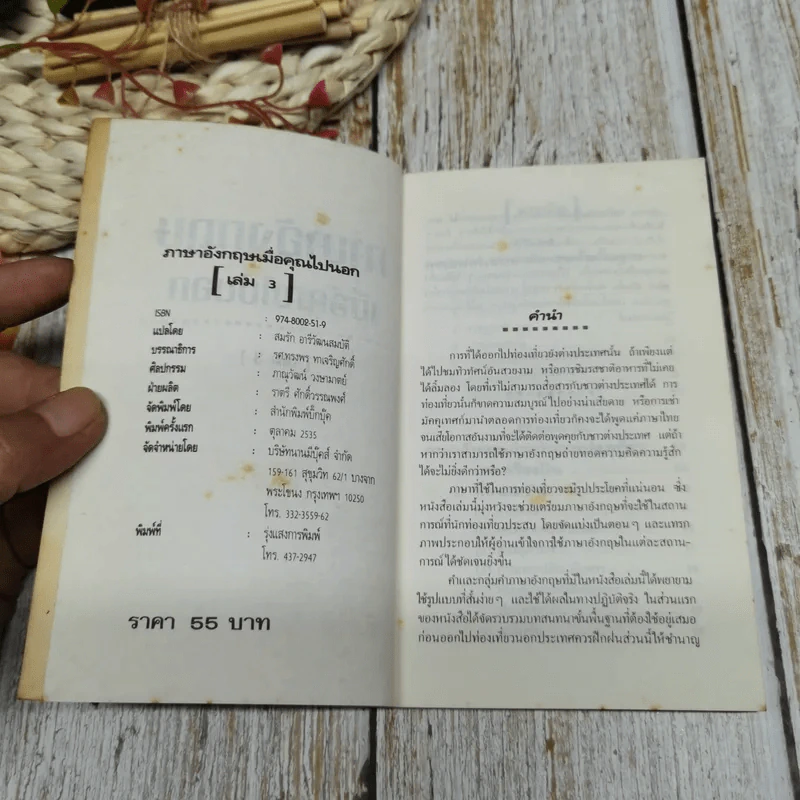 ภาษาอังกฤษเมื่อคุณไปนอก
[เล่ม 3]
ISBN : 974-8002-51-9
แปลโดย : สมรัก อารีวัฒนสมบัติ
บรรณาธิการ : รศ.ทรงพร ทาเจริญศักดิ์
ศิลปกรรม : ภาณุวัฒน์ วงษามาตย์
ฝ่ายผลิต : ราตรี ศักดิ์วรรณพงศ์
จัดพิมพ์โดย : สำนักพิมพ์บิ๊กบุ๊ค
พิมพ์ครั้งแรก : ตุลาคม 2535
จัดจำหน่ายโดย : บริษัทนานมีบุ๊คส์ จำกัด
159-161 สุขุมวิท 62/1 บางจาก
พระโขนง กรุงเทพฯ 10250
โทร. 332-3559-62
พิมพ์ที่ : รุ่งแสงการพิมพ์
โทร. 437-2947
ราคา 55 บาท
คำนำ
การที่ได้ออกไปท่องเที่ยวยังต่างประเทศนั้น ถ้าเพียงแต่
ได้ไปชมทิวทัศน์อันสวยงาม หรือการชิมรสชาติอาหารที่ไม่เคย
ได้ลิ้มลอง โดยที่เราไม่สามารถสื่อสารกับชาวต่างประเทศได้ การ
ท่องเที่ยวนั้นก็ขาดความสมบูรณ์ไปอย่างน่าเสียดาย หรือการเช่า
มัคคุเทศก์มานำตลอดการท่องเที่ยวก็คงจะได้พูดแค่ภาษาไทย
จนเสียโอกาสอันงามที่จะได้ติดต่อพูดคุยกับชาวต่างประเทศ แต่ถ้า
หากว่าเราสามารถใช้ภาษาอังกฤษถ่ายทอดความคิดความรู้สึก
ได้จะไม่ยิ่งดีกว่าหรือ?
ภาษาที่ใช้ในการท่องเที่ยวจะมีรูปประโยคที่แน่นอน ซึ่ง
หนังสือเล่มนี้มุ่งหวังจะช่วยเตรียมภาษาอังกฤษที่จะใช้ในสถาน
การณ์ที่นักท่องเที่ยวประสบ โดยจัดแบ่งเป็นตอนๆ และแทรก
ภาพประกอบให้ผู้อ่านเข้าใจการใช้ภาษาอังกฤษในแต่ละสถาน-
การณ์ได้ชัดเจนยิ่งขึ้น
คำและกลุ่มคำภาษาอังกฤษที่มีในหนังสือเล่มนี้ได้พยายาม
ใช้รูปแบบที่สั้นง่ายๆ และใช้ได้ผลในทางปฏิบัติจริง ในส่วนแรก
ของหนังสือได้จัดรวบรวมบทสนทนาขั้นพื้นฐานที่ต้องใช้อยู่เสมอ
ก่อนออกไปท่องเที่ยวนอกประเทศควรฝึกฝนส่วนนี้ให้ชำนาญ